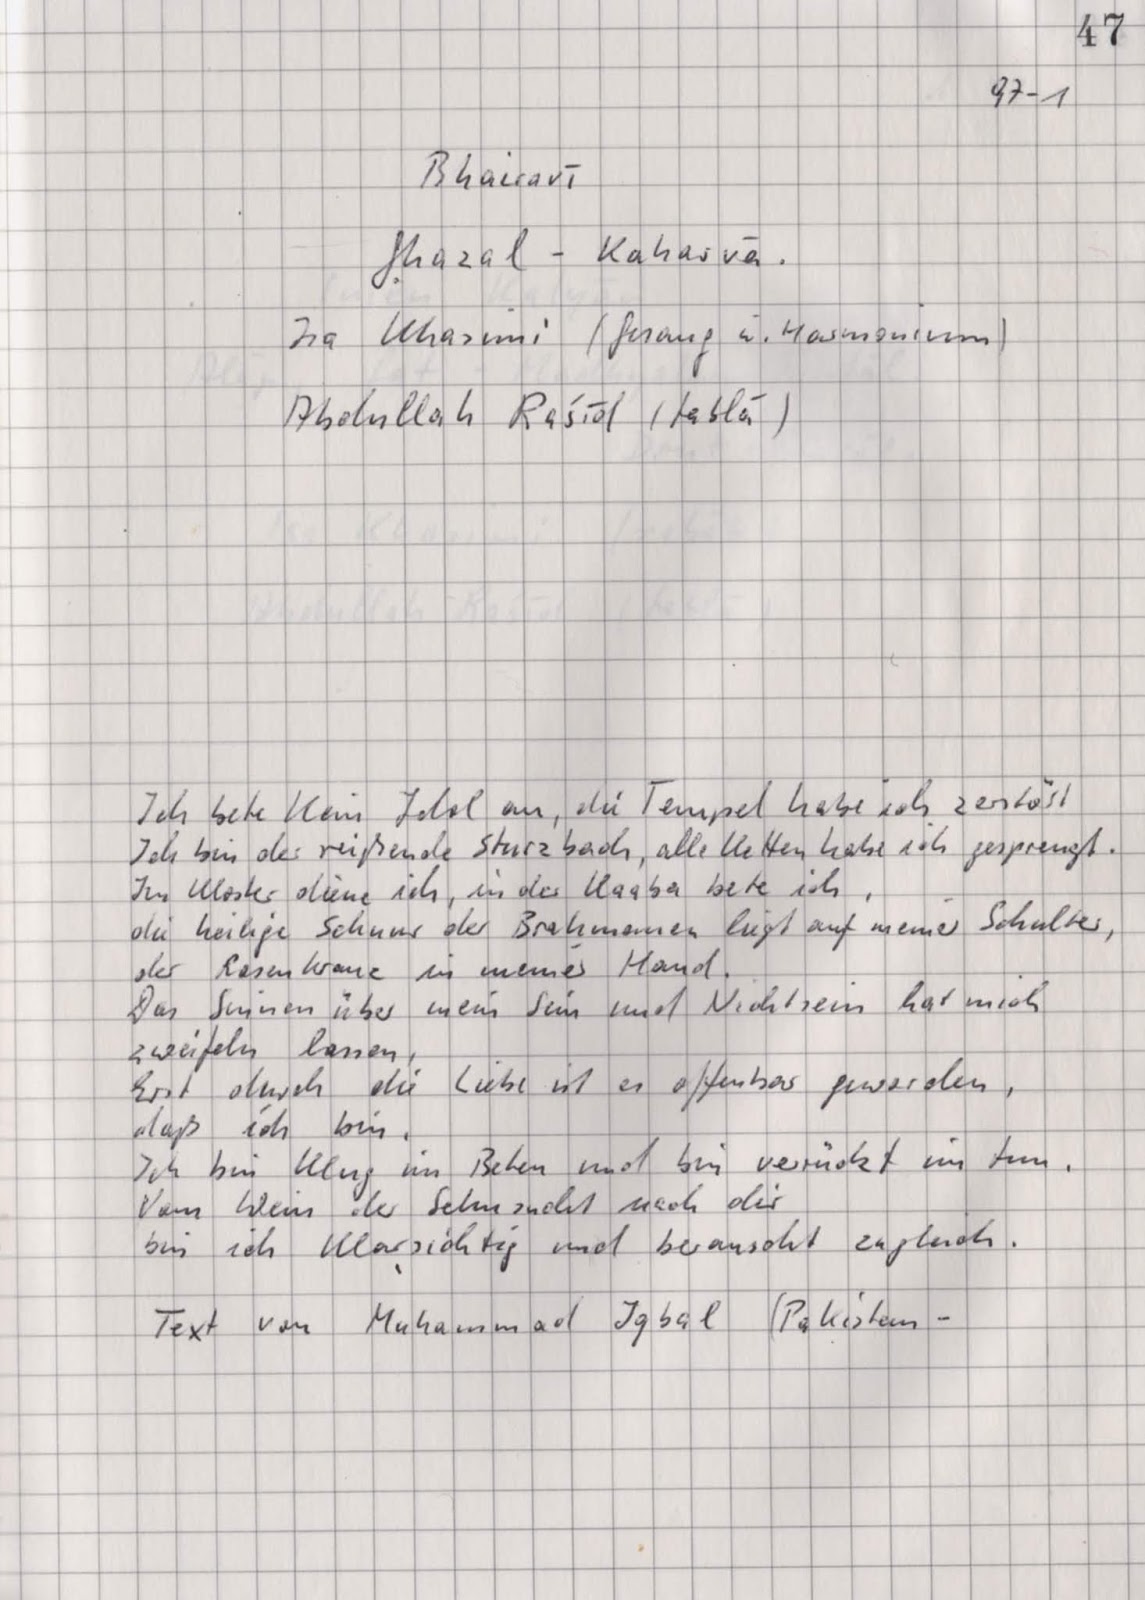 47
97-1
Bhairavī
Ghazal - Kaharvā.
Ira Khasimi (Gesang u. Harmonium)
Abdullah Raśīd (tablā)
Ich bete kein Idol an, die Tempel habe ich zerstört
Ich bin der reißende Sturzbach, alle Ketten habe ich gesprengt.
Im Kloster diene ich, in der Kaaba bete ich,
die heilige Schnur der Brahmanen liegt auf meiner Schulter,
der Rosenkranz in meiner Hand.
Das Sinnen über mein Sein und Nichtsein hat mich
zweifeln lassen,
Erst durch die Liebe ist es offenbar geworden,
daß ich bin.
Ich bin klug im Beten und bin verrückt im tun.
Vom Wein der Sehnsucht nach dir
bin ich klarsichtig und berauscht zugleich.
Text von Muhammad Iqbāl (Pakistan-